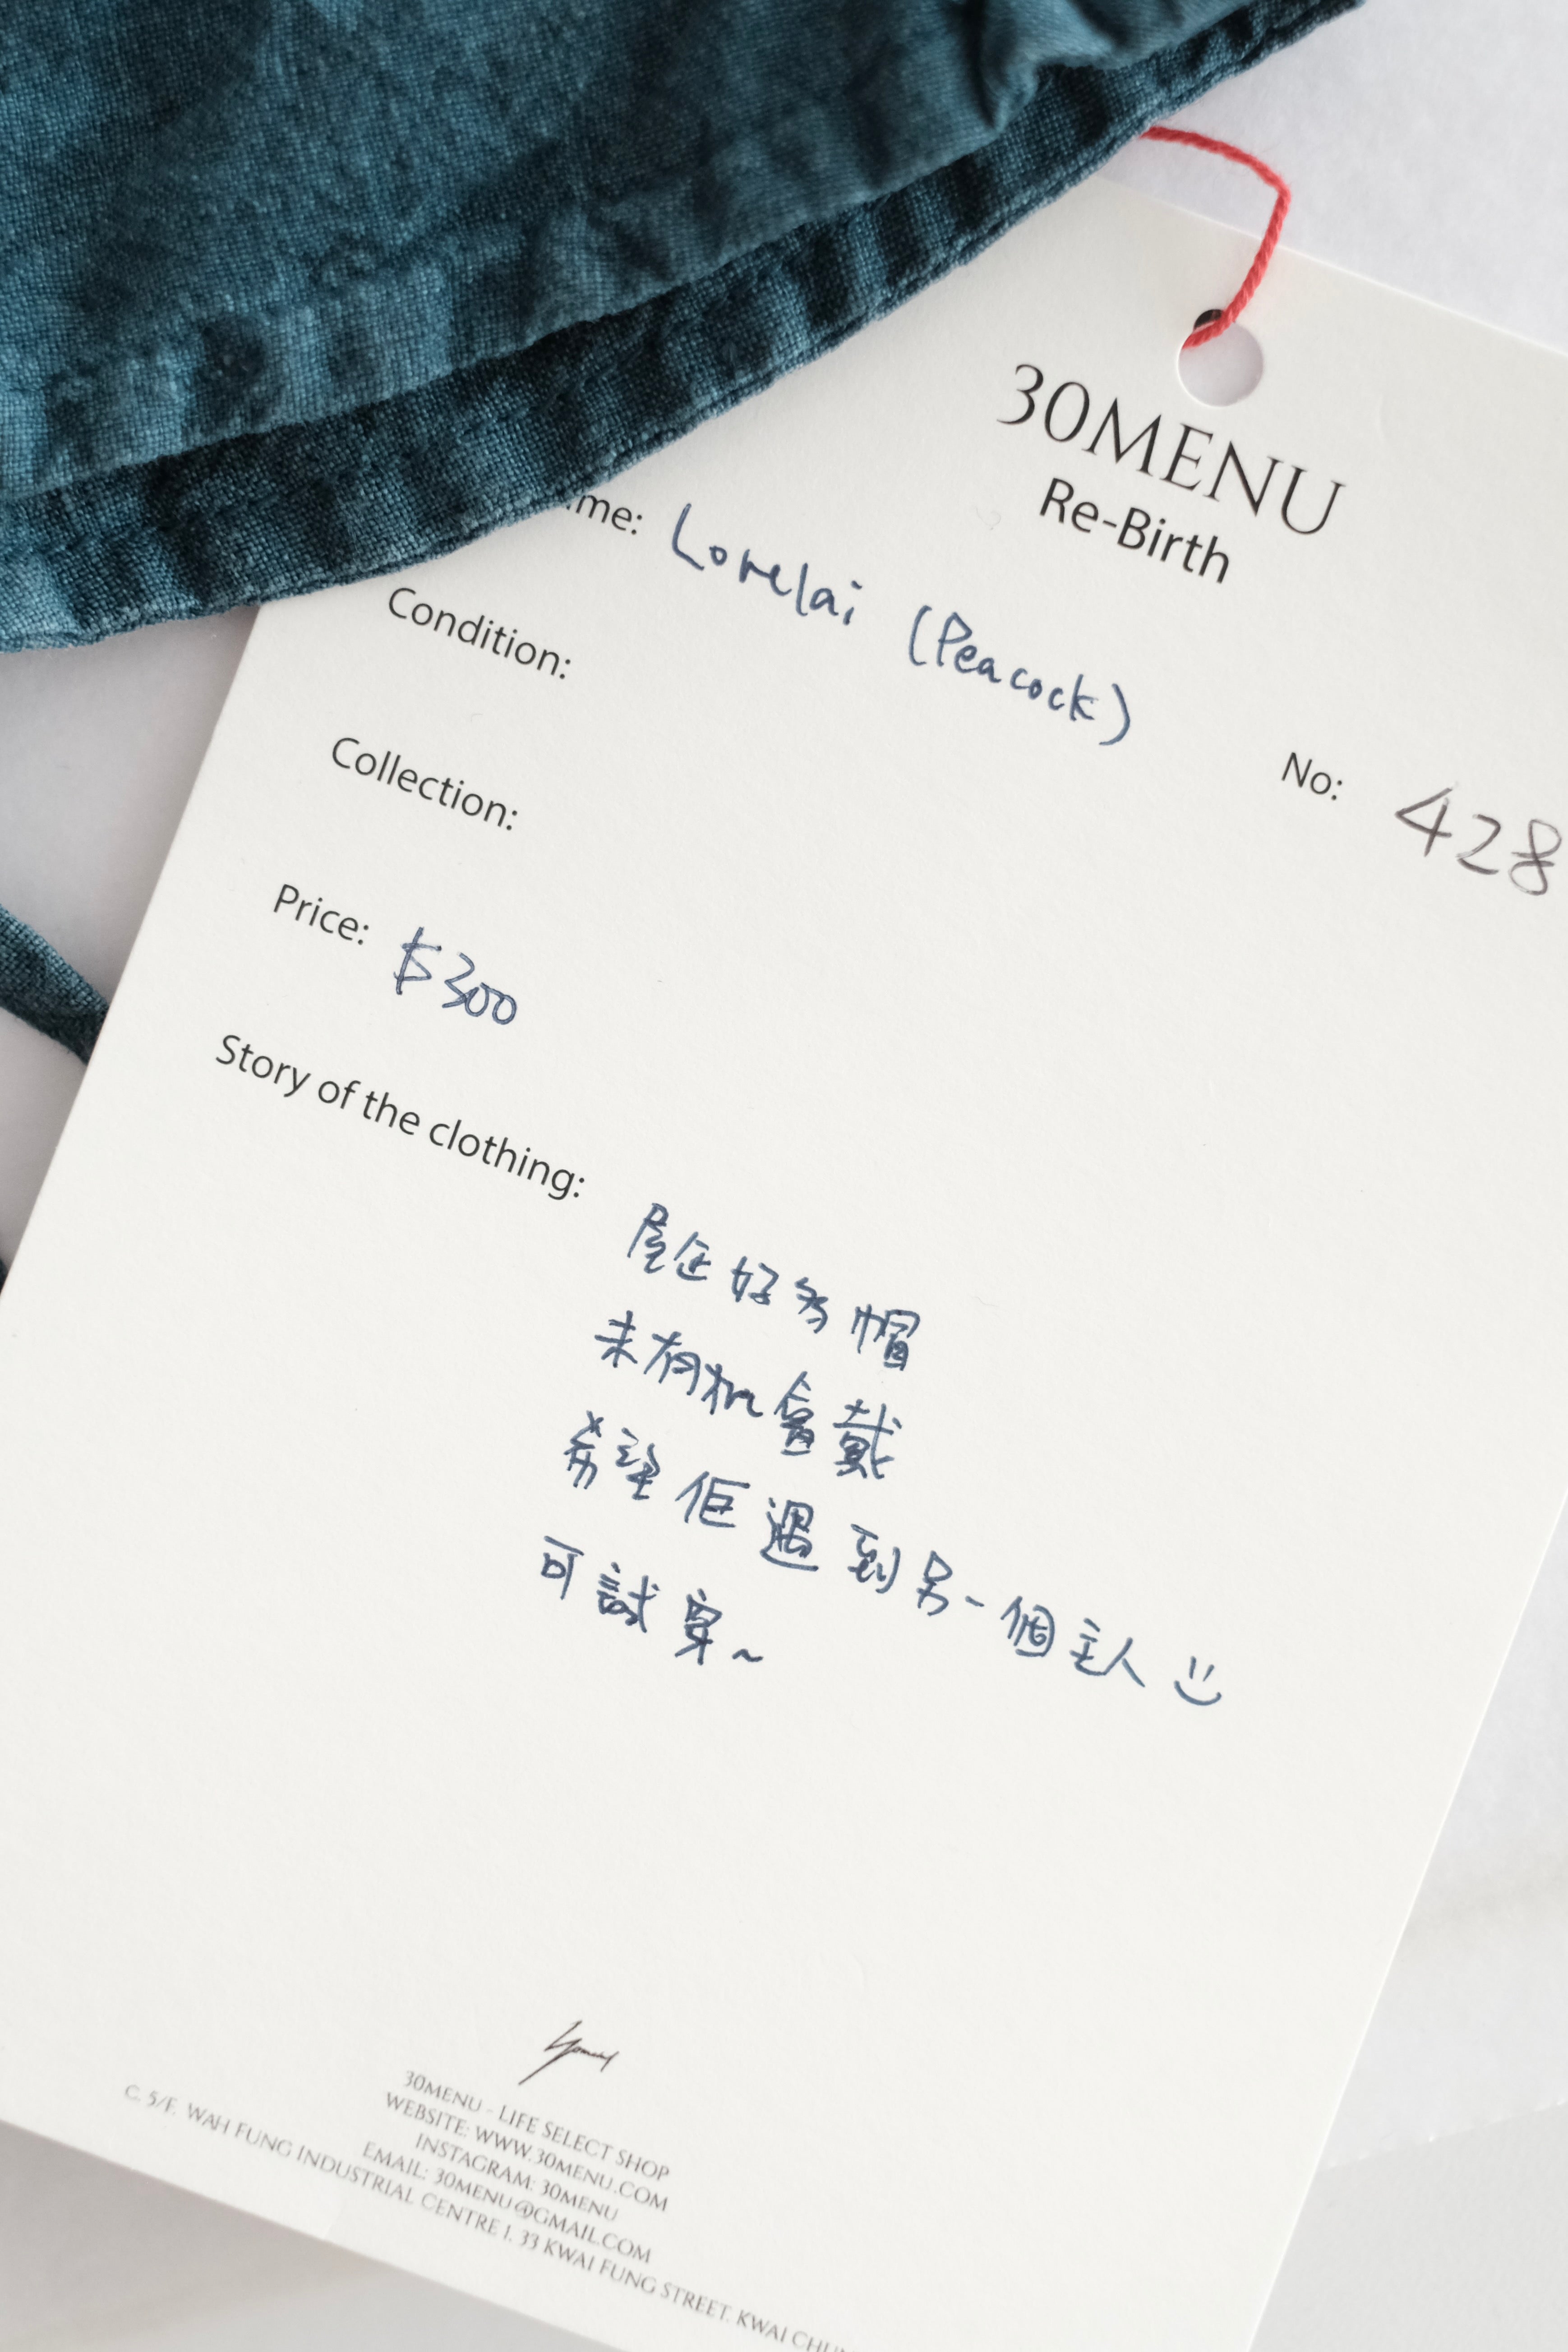 30MENU
Re-Birth
me: Lorelai (Peacock)
Condition:
No: 428
Collection:
Price: $300
Story of the clothing:
屋企好多帽
未有机會戴
希望佢遇到另一個主人 :)
可試穿~
30MENU - LIFE SELECT SHOP
WEBSITE: WWW.30MENU.COM
INSTAGRAM: 30MENU
EMAIL: 30MENU@GMAIL.COM
C. 5/F. WAH FUNG INDUSTRIAL CENTRE 1. 33 KWAI FUNG STREET. KWAI CHUN